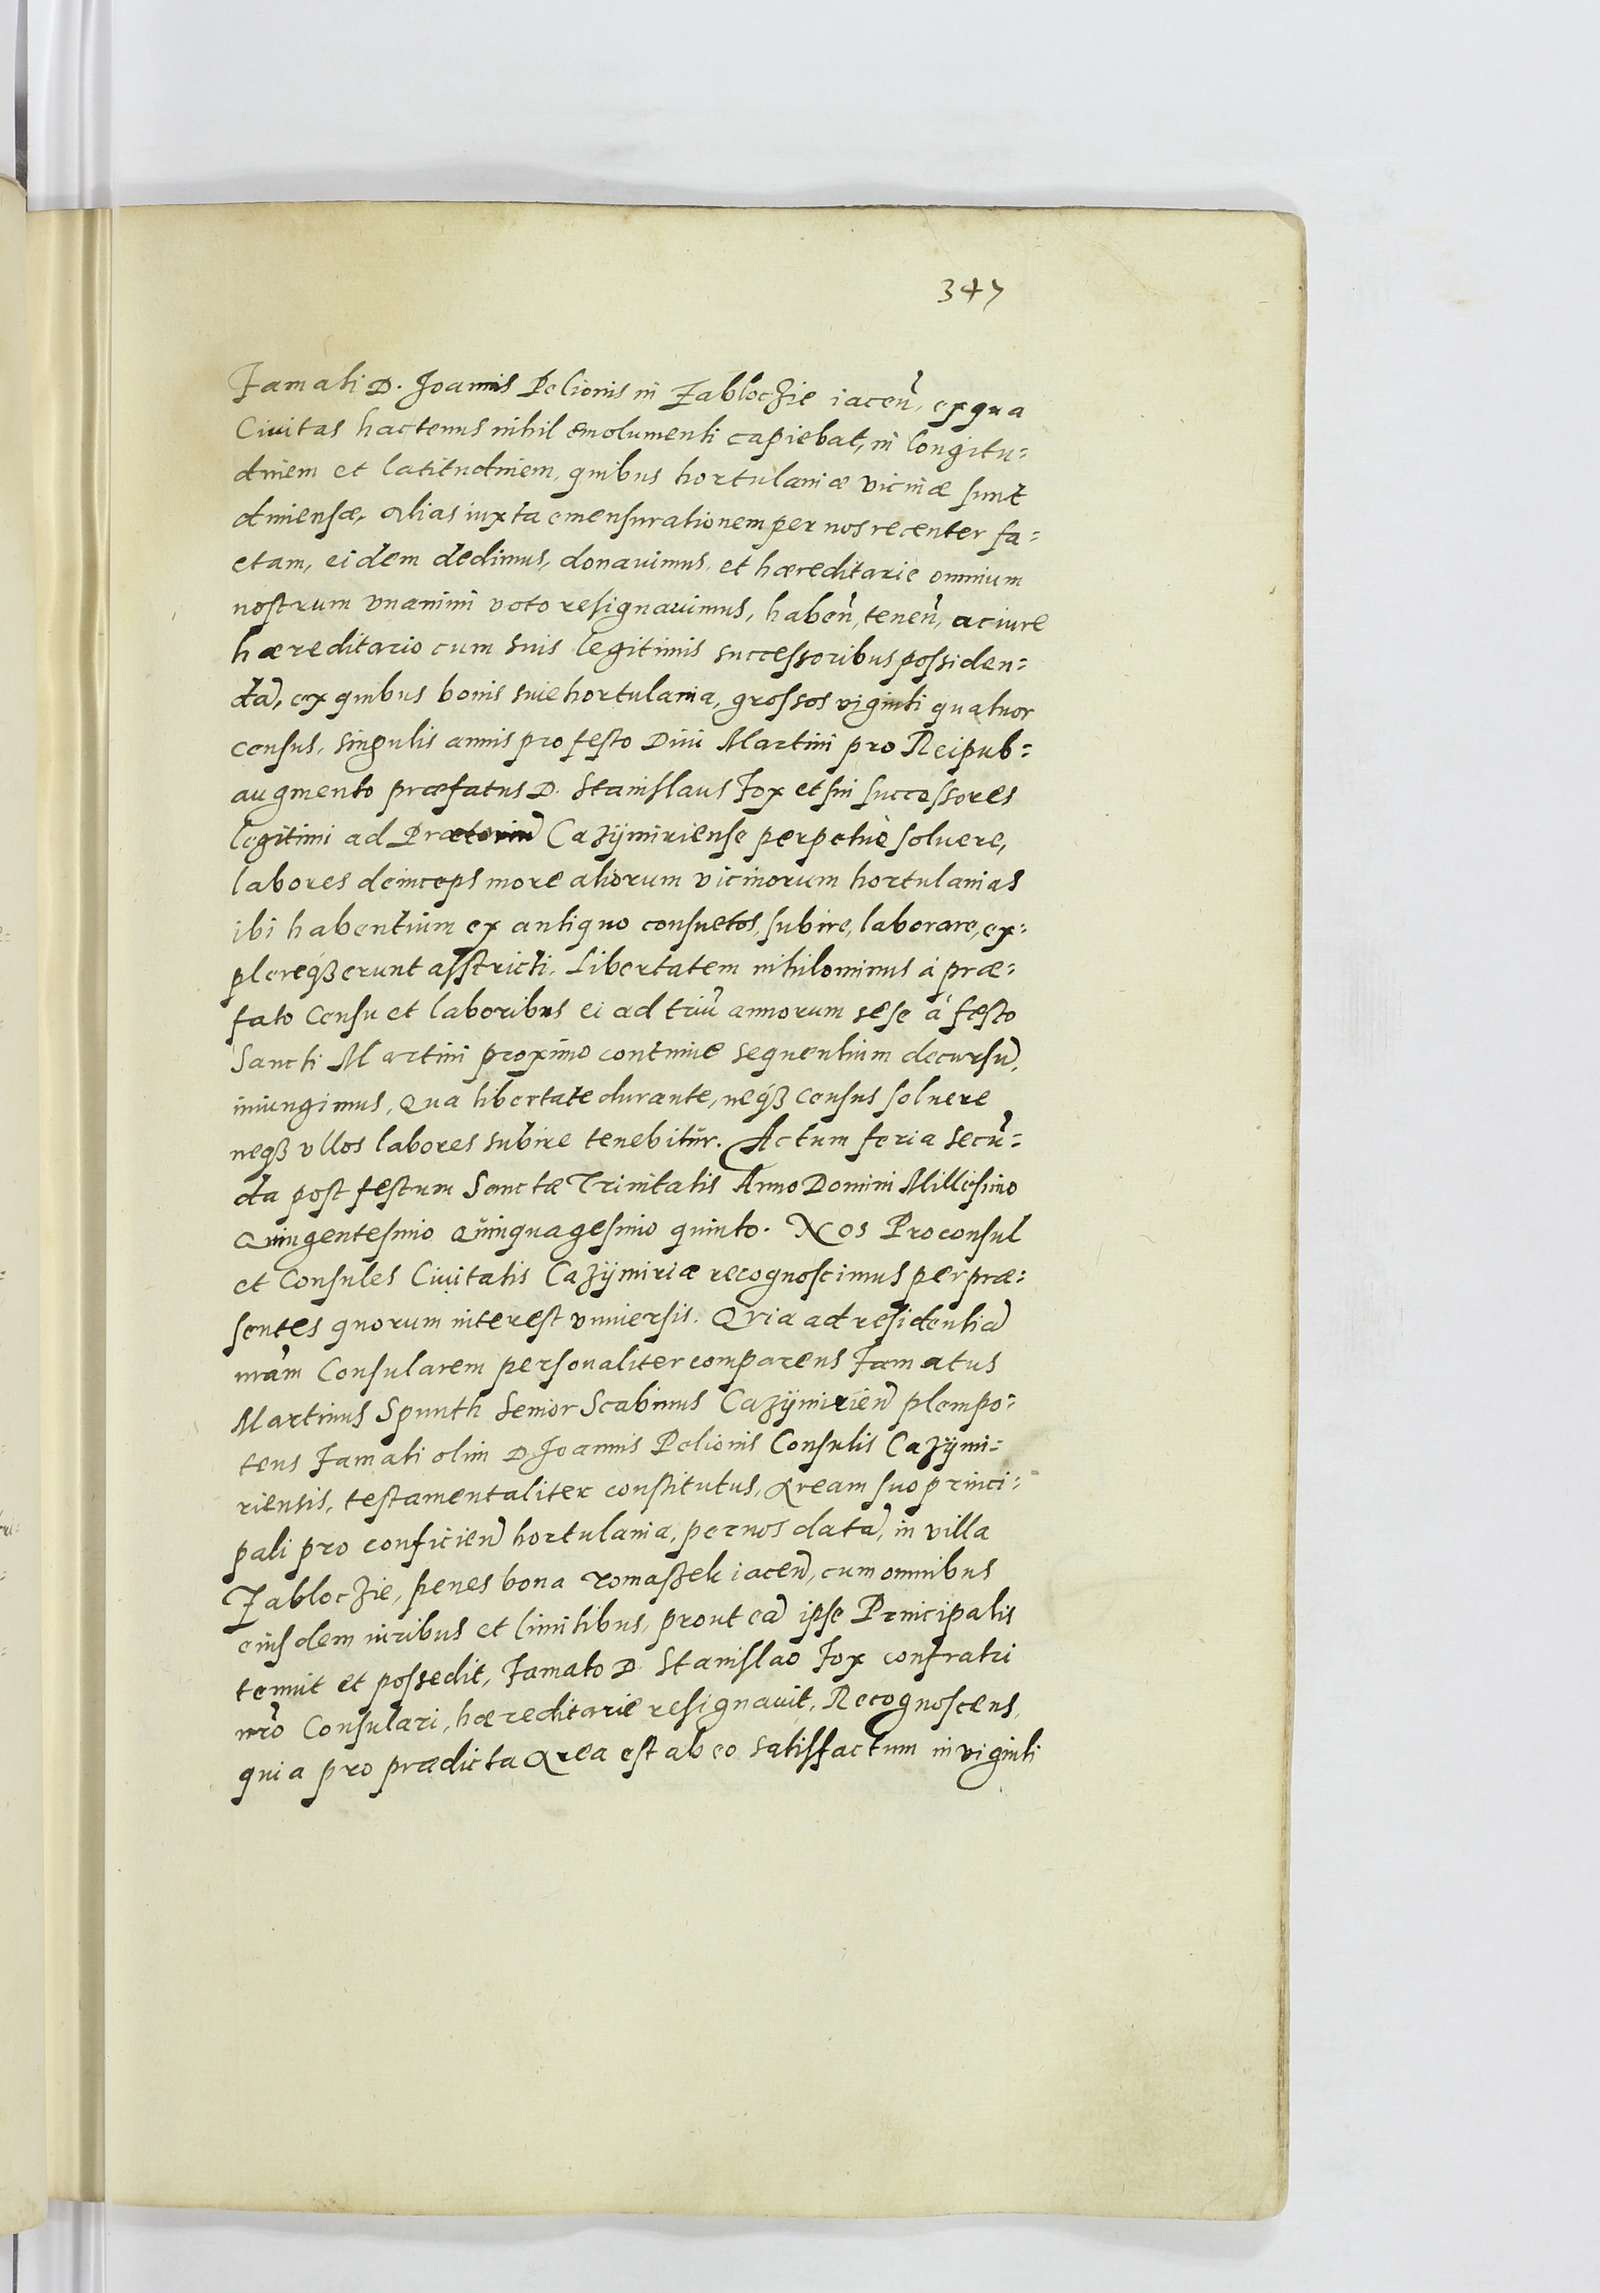 347
Famati D. Joannis Pelionis in Zabloczie iaceñ, ex qua
Ciuitas hactenus nihil emolumenti capiebat, in longitu=
dinem et latitudinem, quibus hortulaniæ vicinæ sunt
dimensæ, alias iuxta emensurationem per nos recenter fa=
ctam, eidem dedimus, donauimus, et hæreditarie omnium
nostrum vnanimi voto resignauimus, habeñ, teneñ, ac iure
hæreditario cum suis legitimis successoribus possiden=
dã, ex quibus bonis siue hortulania, grossos viginti quatuor
census, singulis annis pro festo Diui Martini pro Reipub=
augmento præfatus D. Stanislaus Fox et sui successores
legitimi ad Prætoriũ Cazÿmiriense perpetuè soluere,
labores deinceps more aliorum vicinorum hortulanias
ibi habentium ex antiquo consuetos, subire, laborare, ex=
plereqȝ erunt asstricti. Libertatem nihilominus á præ=
fato Censu et laboribus ei ad triũ annorum sese á festo
Sancti Martini proximo continue sequentium decursũ,
iniungimus, Qua libertate durante, neqȝ census soluere
neqȝ vllos labores subire tenebitur. Actum feria secũ=
da post festum Sanctæ Trinitatis Anno Domini Millesimo
Quingentesimo Quinquagesimo quinto. Nos Proconsul
et Consules Ciuitatis Cazÿmiriæ recognoscimus per præ=
sentes quorum interest vniuersis. Quia ad residentiã
nrãm Consularem personaliter comparens Famatus
Martinus Spunth Senior Scabinus Cazÿmirieñ plenipo=
tens Famati olim D. Joannis Pelionis Consulis Cazÿmi=
riensis, testamentaliter constitutus, Aream suo princi=
pali pro conficieñ hortulania, per nos datã, in villa
Zabloczie, penes bona Romaszek iaceñ, cum omnibus
eiusdem iuribus et limitibus, prout eã ipse Principalis
tenuit et possedit, Famato D. Stanislao Fox confratri
nrõ Consulari, hæreditarie resignauit, Recognoscens,
quia pro prædicta Area est ab eo satisfactum in viginti